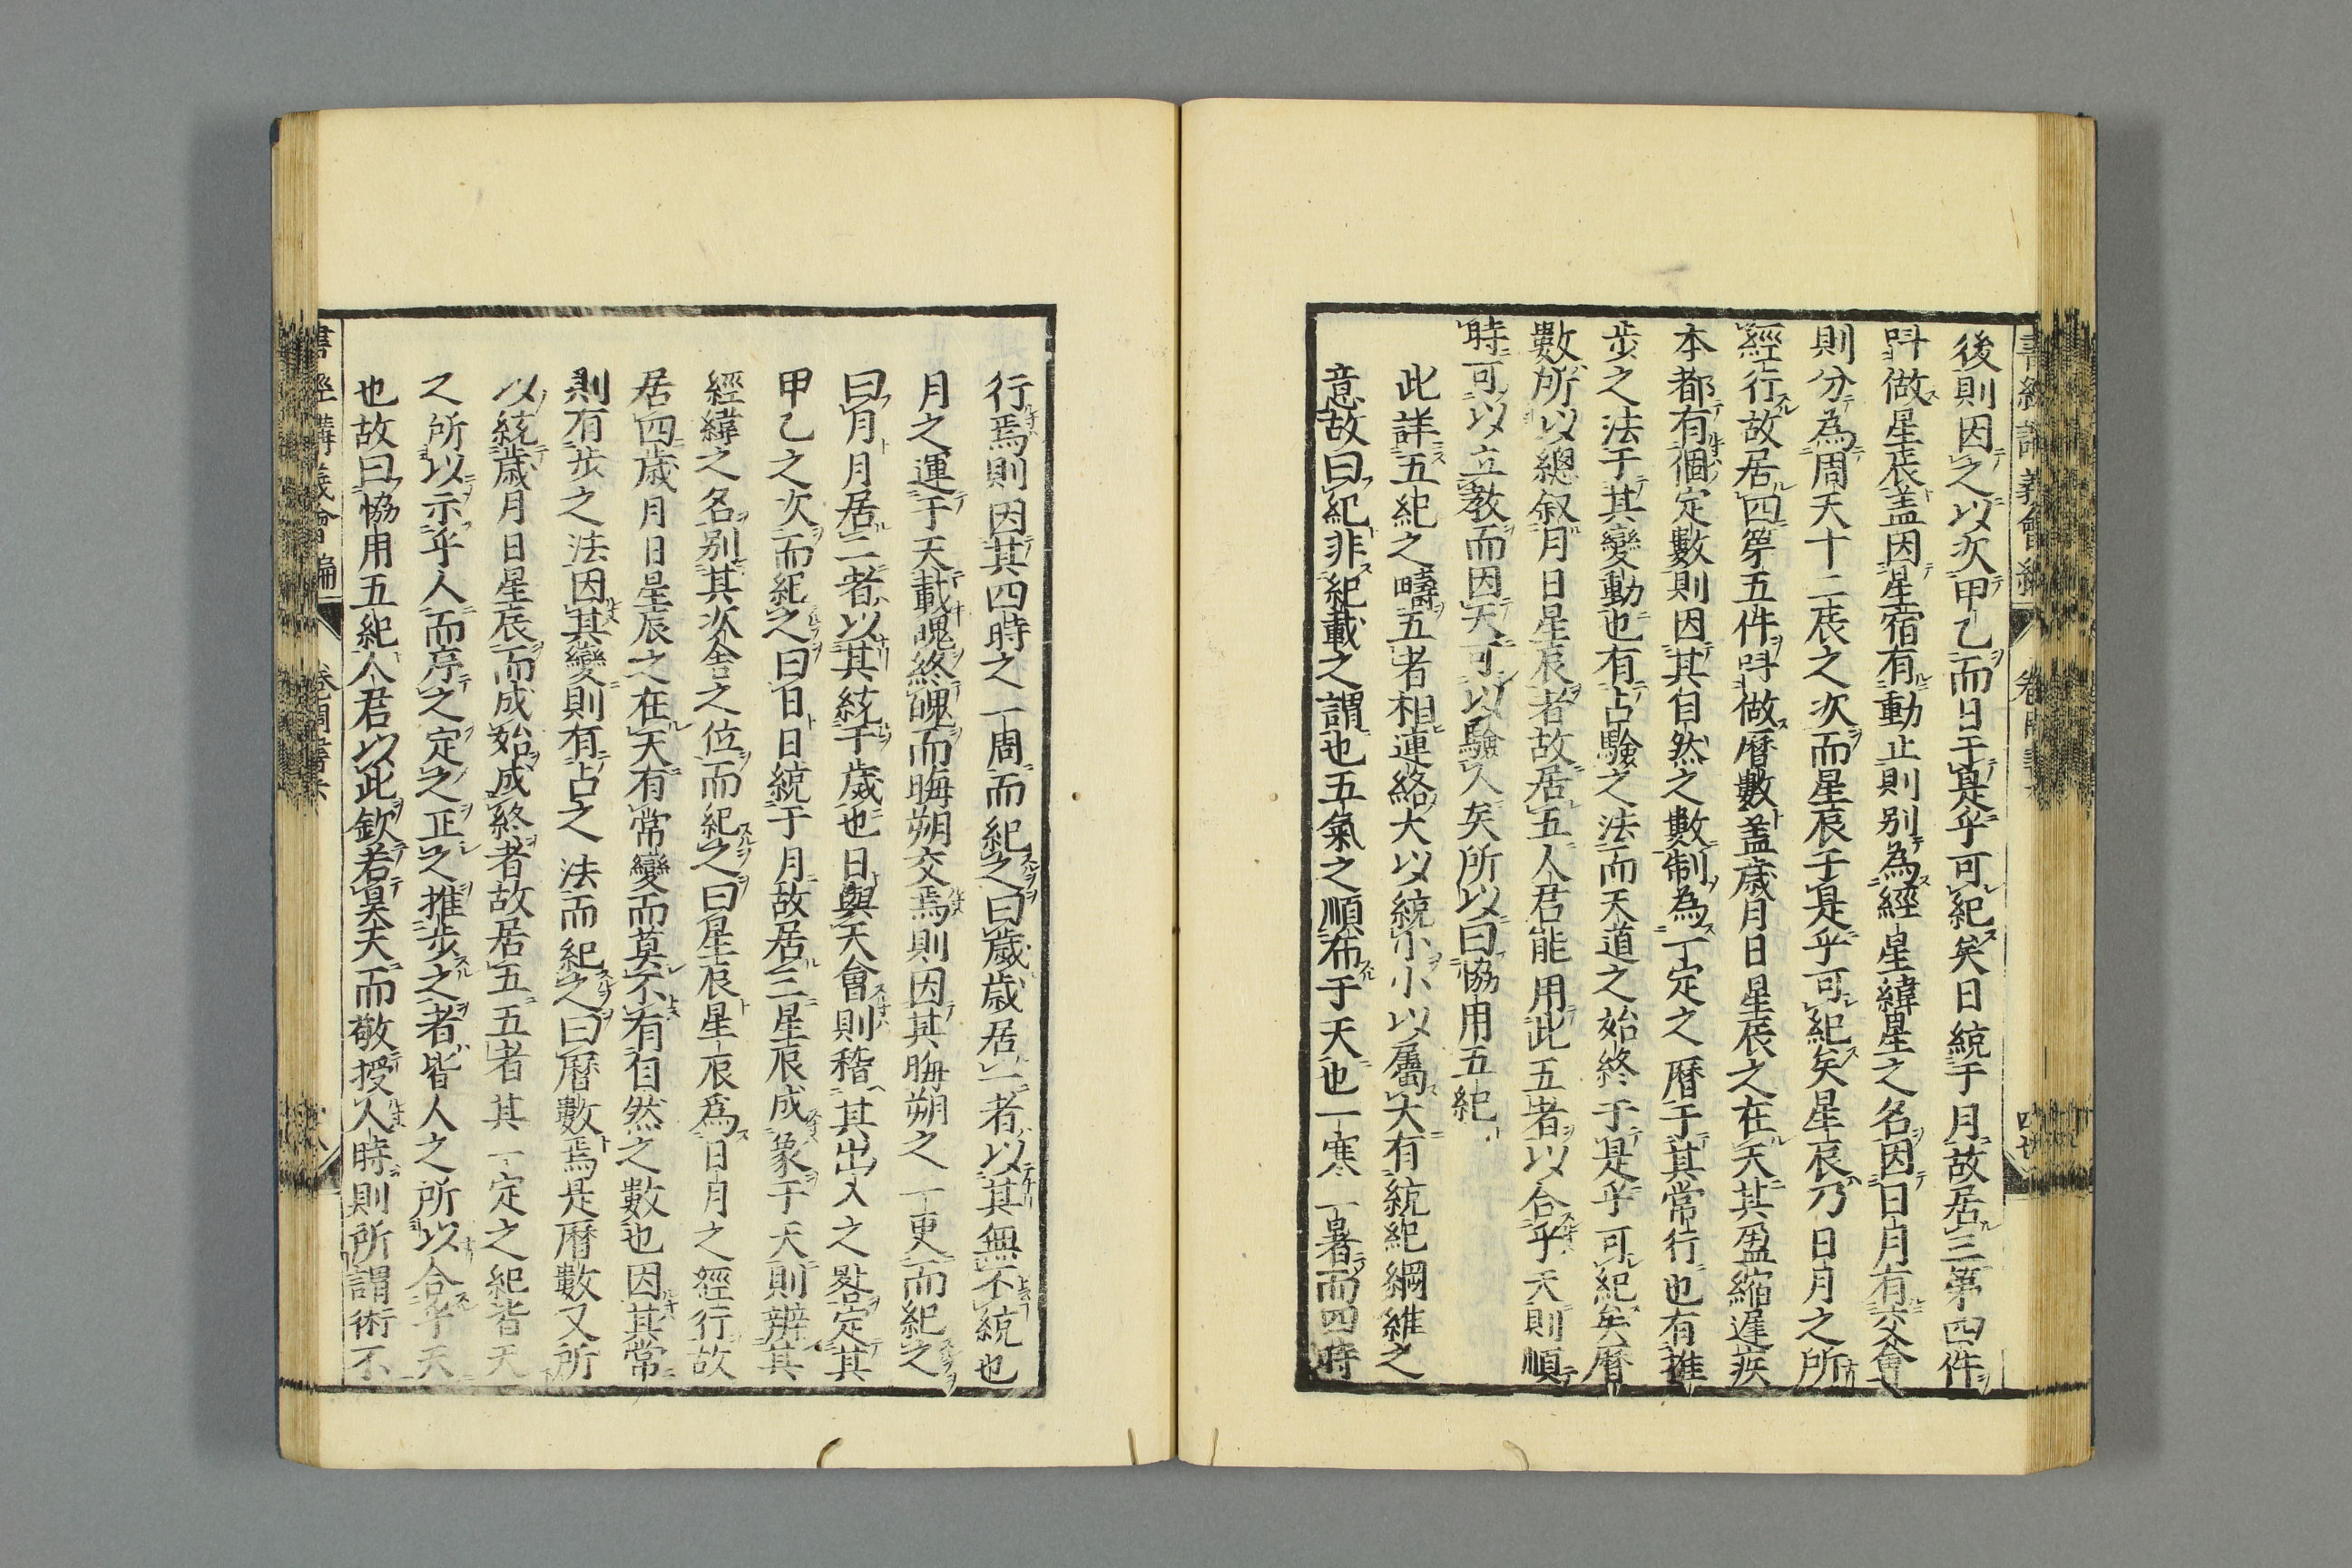 後則因之以次甲乙而日于是乎可紀矣日統于月故居三第四件
呌做星辰蓋因星宿有動止則别為經星緯星之名因日月有交會
則分為周天十二辰之次而星辰于是乎可紀矣星辰乃日月之所
經行故居四第五件呌做曆數蓋歳月日星辰之在天其盈縮遲疾
本都有個定數則因其自然之數制為一定之曆于其常行也有推
步之法于其變動也有占驗之法而天道之始終于是乎可紀矣曆
數所以總叙月日星辰者故居五人君能用此五者以合乎天則順
時可以立教而因天可以驗人矣所以曰協用五紀
此詳五紀之疇五者相連絡大以統小小以屬大有統紀綱維之
意故曰紀非紀載之謂也五氣之順布于天也一寒一暑而四時
行焉則因其四時之一周而紀之曰歳歳居一者以其無不統也
月之運于天載魄終魄而晦朔交焉則因其晦朔之一更而紀之
曰月月居二者以其統于歳也日與天會則稽其出入之晷定其
甲乙之次而紀之曰日日統于月故居三星辰成象于天則辨其
經緯之名别其次舍之位而紀之曰星辰星辰爲日月之經行故
居四歳月日星辰之在天有常變而莫不有自然之數也因其常
則有步之法因其變則有占之法而紀之曰曆數焉是曆數又所
以統歳月日星辰而成始成終者故居五五者其一定之紀皆天
之所以示乎人而序之定之正之推步之者皆人之所以合乎天
也故曰協用五紀人君以此欽若昊天而敬授人時則所謂術不
書經講義會編